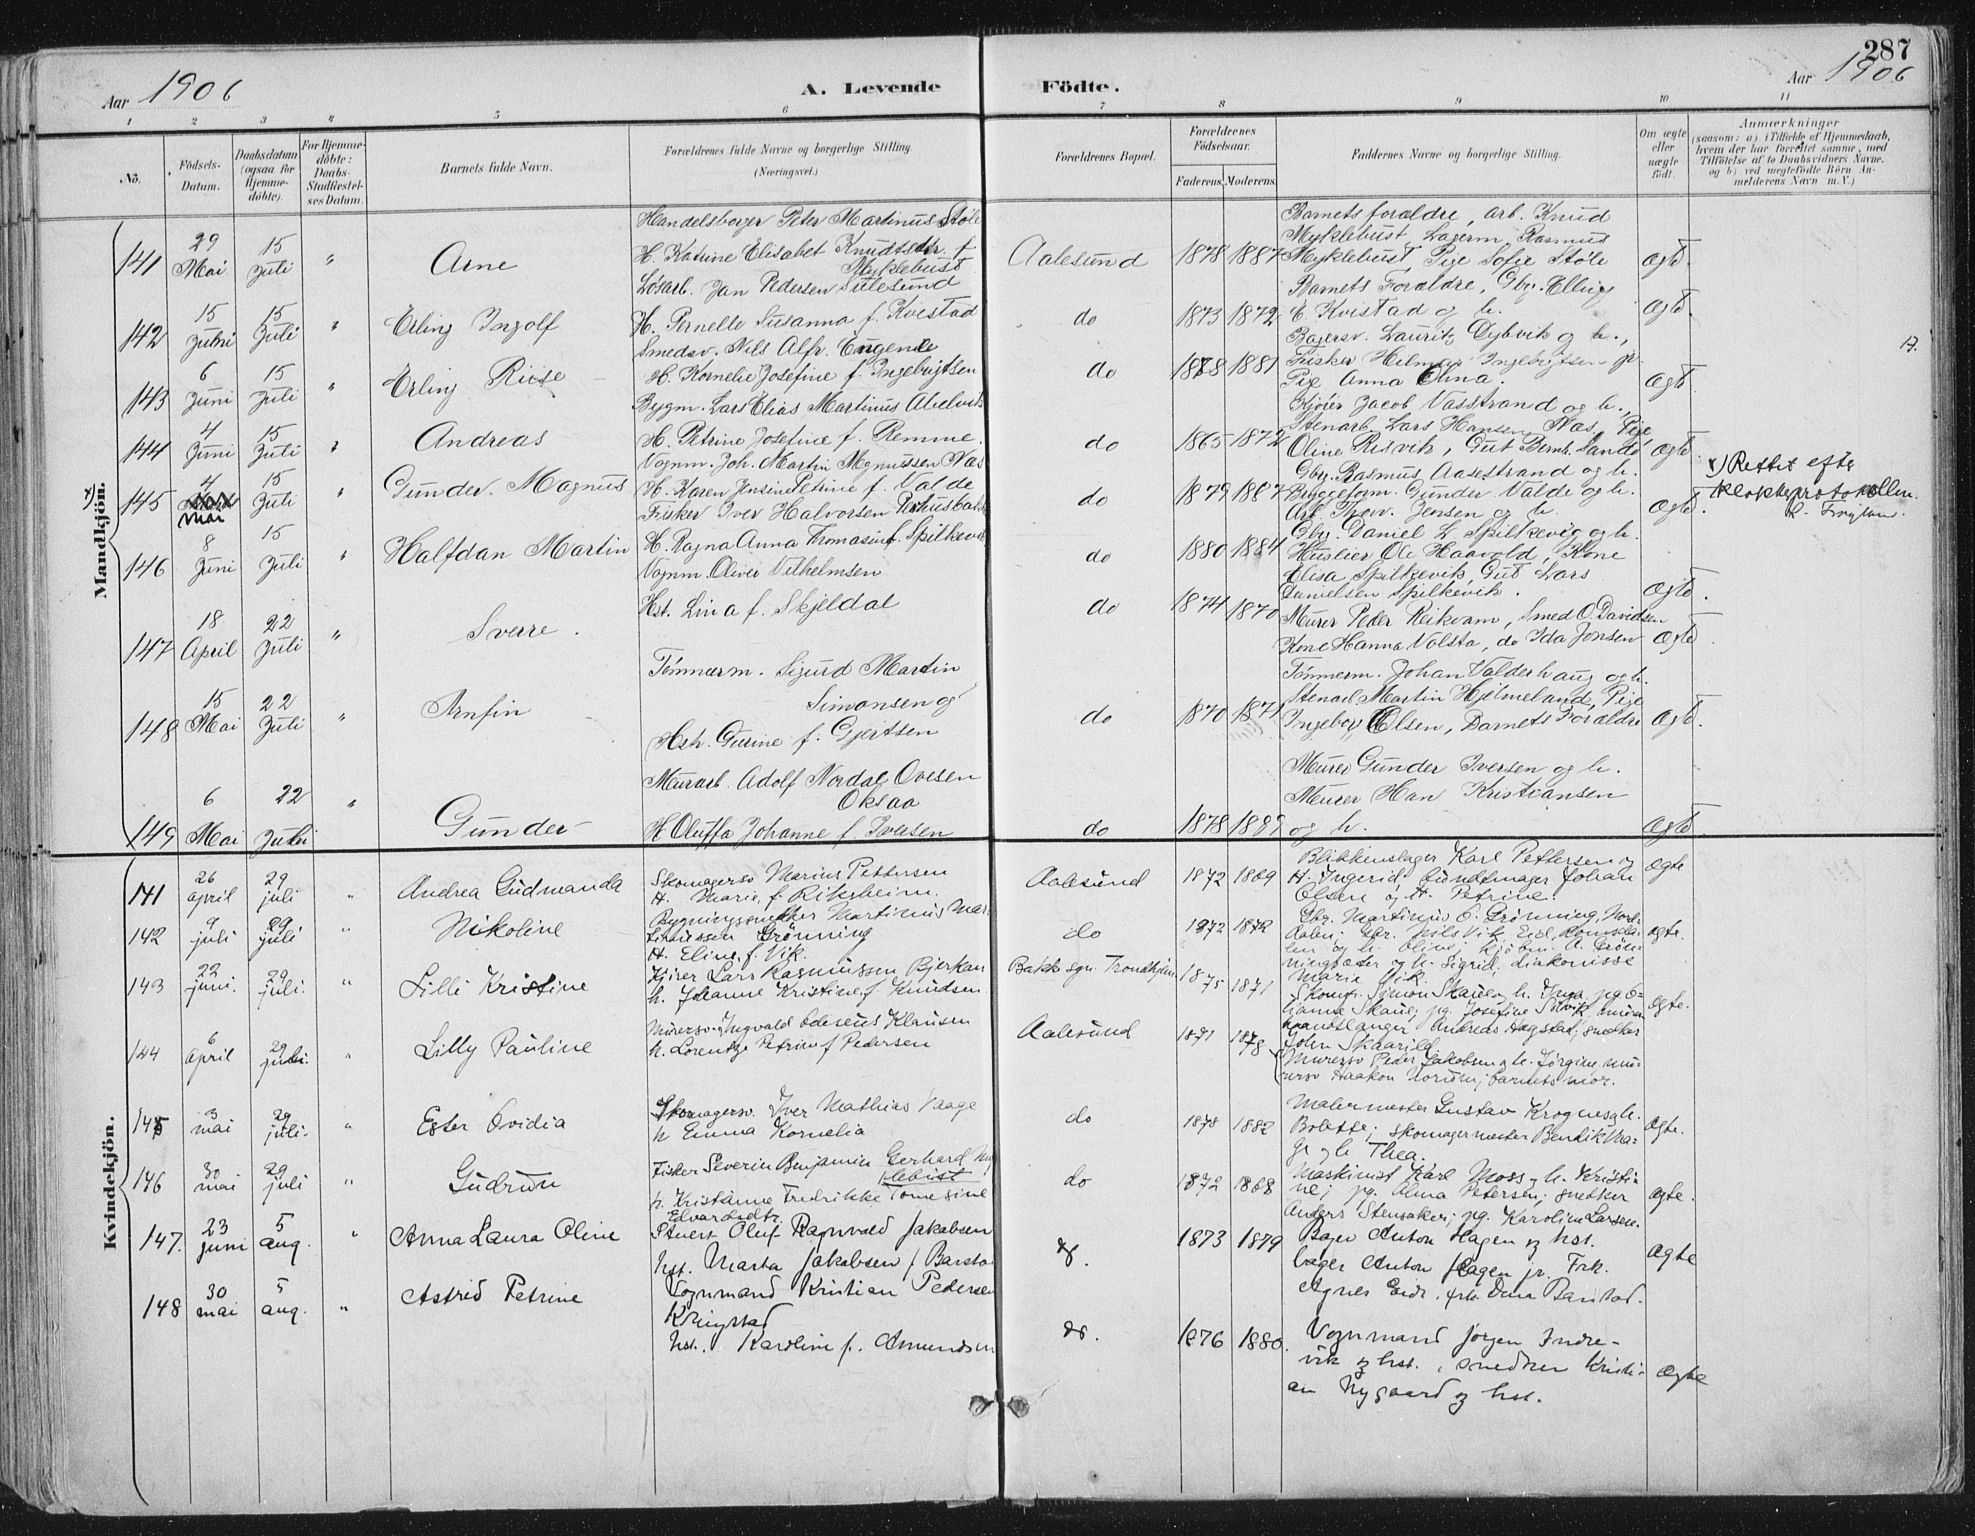 287
Aar 1906
A. Levende
Födte.
Aar 1906
1 2 3 4 5 6 7 8 9 10 11
No.
Födsels-Datum.
Daabsdatum (ogsaa for Hjemme-döbte).
For Hjemme-döbte: Daabs-Stadfæstel-ses Datum.
Barnets fulde Navn.
Forældrenes fulde Navne og borgerlige Stilling.
(Næringsvei.)
Forældrenes Bopæl.
Forældrenes Födselsaar.
Faderens. Moderens.
Faddernes Navne og borgerlige Stilling.
Om ægte eller uægte födt.
Anmærkninger
(saasom: a) i Tilfælde af Hjemmedaab,
hvem der har forrettet samme, med
Tilföielse af to Daabsvidners Navne.
og b) ved uegtefödte Börn An-
melderens Navn m. V.)
Mandkjön.
141 29 Mai 15 Juli " Arne
Handelsborger Peter Martinus Støle
H. Katrine Elisabet Knudsdtr. f
Myklebust
Aalesund 1878 1887
Barnets forældre, arb. Knud
Myklebust, Lagerm. Rasmus
Myklebust Pige Sofie Støle
Ægte.
142 15 Juni 15 Juli " Erling Ingolf
Løsarb. Jan Pedersen Sulesund
H. Pernelle Susanna f. Kvistad
do 1873 1872
Barnets Forældre, Gbr. Elling
E. Kvistad og h.
Ægte.
143 6 Juni 15 Juli " Erling Riise
Smedsv. Nils Alfr. Engende
H. Kornelie Josefine f. Ingebrigtsen
do 1878 1881
Bagersv. Laurits Dybvik og h.,
Fisker Hilmar Ingebrigtsen jr
Pige Anna Olina.
Ægte.
144 4 Juni 15 Juli " Andreas
Bygm. Lars Elias Martinus Abelvik
H. Petrine Josefine f. Remme.
do 1865 1872
Kjører Jacob Vasstrand og h.,
Stenarb. Lars Hansen Nas, Pige
Oline Risvik, Gut Bernh. Sandö
Ægte.
x) 145 4 Mai 15 Juli " Gunder. Magnus
Vognm. Joh. Martin Magnussen Nas
H. Karen Jensine Petrine f. Valde
do 1879 1887
Gbr. Rasmus Aasestrand og h.
Byggeform. Gunder Valde og h.
Arb. Thorv. Jensen og h.
Ægte.
x) Rettet efter
klokkerprotokollen.
146 8 Juni 15 Juli " Halfdan Martin
Fisker Iver Halvorsen
H. Ragna Anna Thomasine f. Spilkevik
do 1880 1884
Gbr. Daniel L Spilkevig og h.
Huslier Ole Haavold, Kone
Elisa Spilkevik, Gut Lars
Danielsen Spilkevik.
Ægte.
147 18 April 22 Juli " Sverre.
Vognm. Oliver Vilhelmsen
Hst. Lina f. Skjeldal
do 1874 1870
Murer Peder Reikvam, Smed O. Davidsen
Kone Hanna Volsta, do Ida Jonsen
Ægte.
148 15 Mai 22 Juli " Arnfin
Tömmerm. Sigurd Martin
Simonsen og
Hstr. Gurine f. Gjertsen
do 1870 1871
Tömmerm. Johan Valderhaug og h.
Stenarb. Martin Hjelmeland, Pige
Ingeborg Olsen, Barnets Forældre
Ægte.
149 6 Mai 22 Juli " Gunder
Murarb. Adolf Nordal Ovesen
Oksaa
H Oluffa Johanne f. Iversen
do 1878 1889
Murer Gunder Iversen og h.
Murer Han Kristiansen
og h.
Ægte
Kvindekjön.
141 26 april 29 juli " Andrea Gudmanda
Skomagersv. Marius Pettersen
H. Marie f. Riksheim.
Aalesund 1872 1869
Blikkenslager Karl Pettersen og
H. Ingerid; Johan
Olsen og H. Petrine.
Ægte
142 9 juli 29 juli " Nikoline
Bygningssnekker Martinus Mar-
tinussen Grönning
H. Eline f. Vik.
do 1872 1872
Gbr. Martinus O. Grönning,
Nils Vik Eid, Romsda-
len og h. Olive;
og h. Sigrid, diakonisse
Marie Vik.
ægte.
143 22 juni. 29 juli. " Lilli Kristine
Kjörer Lars Rasmussen Bjerkan
h. Johanne Kristine f. Knudsen
Bakk sgn. Trondhjem 1875 1871
Simon Skaue og h. Inga,
Skaue; pg. Josefine
Andreas Hagstad, snekker
John Skaarild
ægte.
144 6 april 29 juli. " Lilly Pauline
Murersv. Ingvald Odeseus Klausen
h. Lorentze Petrine f Pedersen
Aalesund 1871 1878
Murersv Peder Jakobsen og h. Jörgine, mu-
rersv Haakon Norum; barnets mor.
145 3 mai 29 juli. " Ester Ovidia
Skomagersv. Iver Mathias Vaage
h Emma Kornelia
do 1878 1882
Malermester Gustav Krognes og h.
Bolette; skomagermester Bendik Vaa-
ge og h Thea.
Ægte.
146 30 mai 29 juli " Gudrun
Fisker Severin Benjamin Gerhard My
klebust
h. Kristianne Fredrikke Tomesine
Edvardsdtr.
do 1872 1868
Maskinist Karl Moss og h. Kristi-
ne; pg. Alma Petersen; snekker
Anders Stensaker; pg. Karoline Larsen.
ægte.
147. 23 juni 5 aug. " Anna Laura Oline
Stuert Oluf Ragnvald Jakobsen
hst. Marta Jakobsen f Barsta
do. 1873 1879
Bager Anton Hagen og hst.
bager Anton Hagen jr. Frk.
Agnes Eide, frk.
Ægte
148 30 mai 5 aug. " Astrid Petrine
Vognmand Kristian Pedersen
Kringstad
hst. Karoline f. Amundsen
do. 1876 1880.
Vognmand Jörgen Indre-
vik og hst., snedker Kristi-
an Nygaard og hst.
Ægte